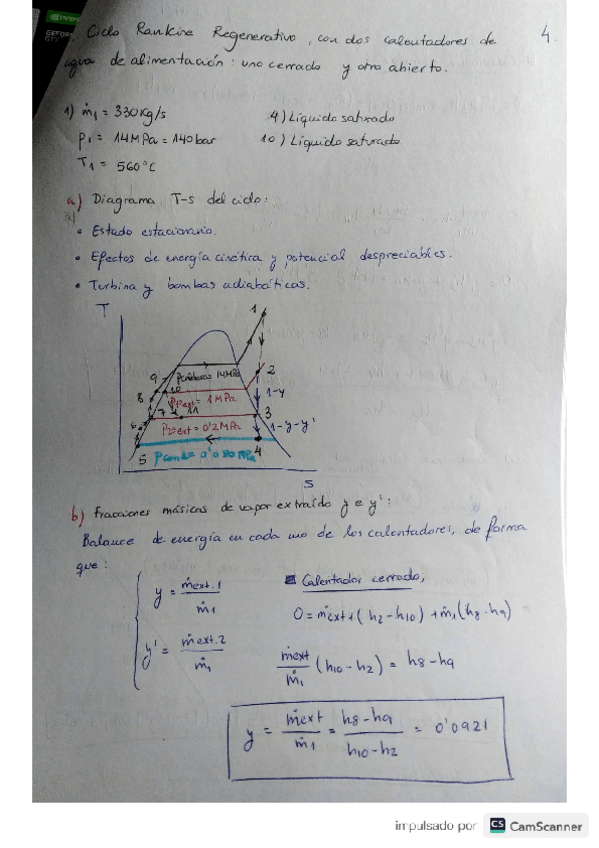 Ciclo Rankine Regenerativo, con dos calentadores de
4.
agua de alimentación: uno cerrado y otro abierto.
1) ṁ₁ = 330 Kg/s
4) Líquido saturado
P₁ = 14 MPa = 140 bar
10) Líquido saturado
T₁ = 560°C
a) Diagrama T-s del ciclo:
• Estado estacionario.
• Efectos de energía cinética y potencial despreciables.
• Turbina y bombas adiabáticas.
T
1
9
Pcaldera= 14MPa
2
10
8
P1ºext = 1 MPa
1-y
7
11
3
6
P2ºext = 0'2 MPa
1-y-y'
5
4
s
b) Fracciones másicas de vapor extraído y e y':
Balance de energía en cada uno de los calentadores, de forma
que:
y = ṁext.1 / ṁ₁
Calentador cerrado,
0 = ṁext1 (h2 - h10) + ṁ₁(h8 - h9)
y' = ṁext.2 / ṁ₁
ṁext / ṁ₁ (h10 - h2) = h8 - h9
y = ṁext / ṁ₁ = h8 - h9 / h10 - h2 = 0'0921
impulsado por CS CamScanner